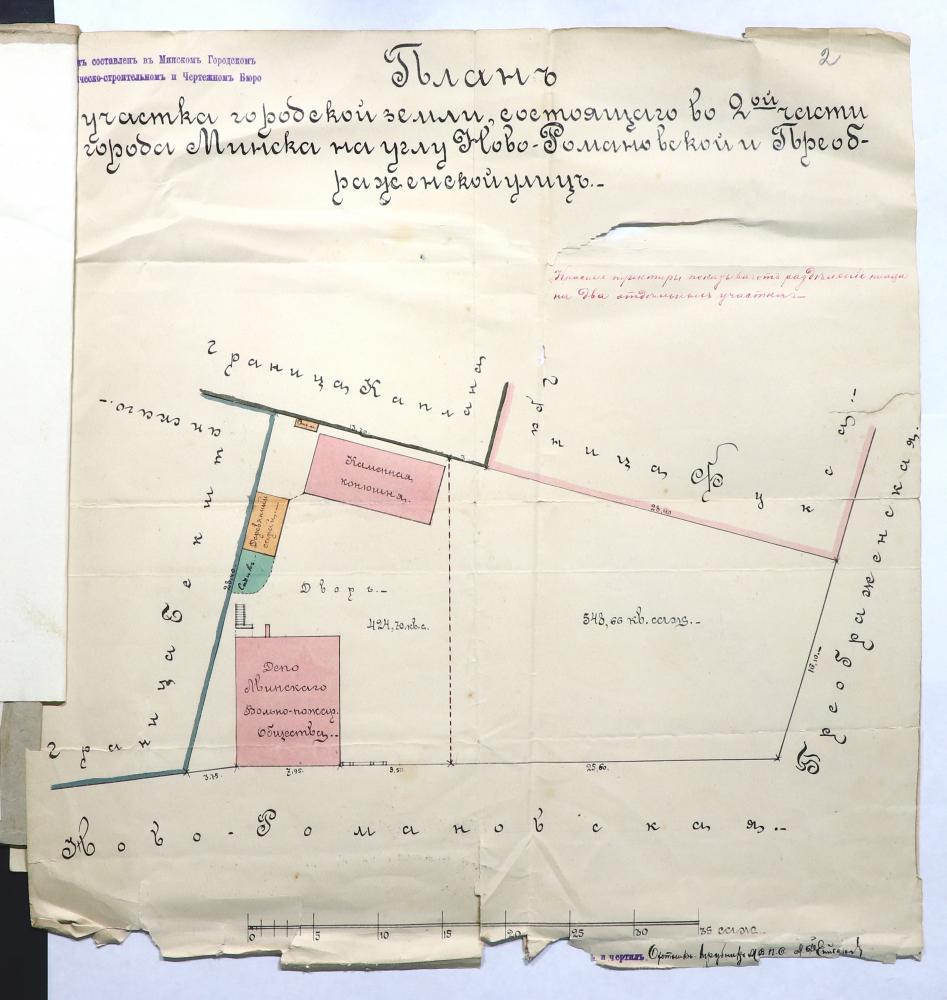 составленъ въ Минскомъ Городскомъ
ческо-строительномъ и Чертежномъ Бюро
2
Планъ
участка городской земли, состоящаго во 2ой части
города Минска на углу Ново-Романовской и Преоб-
раженской улицъ.-
Красные пунктиры показываютъ раздѣленіе плаца
на два отдѣльныхъ участка.-
Граница Каплана
Граница Фукса.-
Граница Секют анскаго.-
13,70
Каменная
конюшня.
Деревянный
сарай.-
Садикъ
Дворъ.-
424,70 кв.с.
543,66 кв. саж.-
Депо
Минскаго
Вольно-пожар.
Общества.-
Преображенская.
3,75.
7,95.
25,60.
Ново-Романовская.-
0 5 10 15 20 25 30 35 саж.
и чертилъ